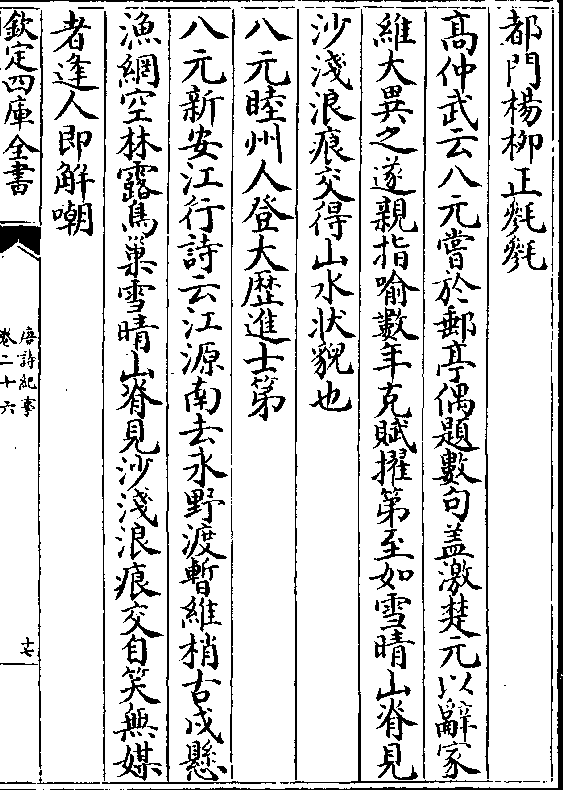 都門楊栁正毿毿
髙仲武云八元嘗於郵亭偶題數句盖激楚元以辭家
維大異之遂親指喻數年克賦擢第至如雪晴山脊見
沙淺浪痕交得山水状貎也
八元睦州人登大厯進士第
八元新安江行詩云江源南去永野渡暫維梢古戍懸
漁網空林露鳥巢雪晴山脊見沙淺浪痕交自笑無媒
者逢人即解嘲
欽定四庫全書
唐詩紀事
卷二十六
十七